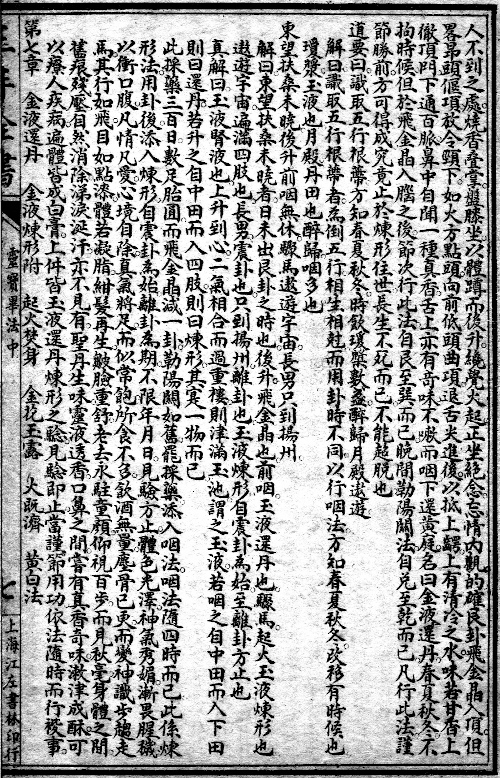 人不到之處燒香疊掌盤膝坐以體蹲而後升纔覺火起正坐絕念忘情內觀的確艮卦飛金晶入頂但
畧昂頭偃項放令頸下如火方點頭向前低頭曲項退舌尖進後以抵上齶上有清冷之水味若甘香上
徹頂門下通百脈鼻中自聞一種真香舌上亦有奇味不漱而咽下還黃庭名曰金液還丹春夏秋冬不
拘時候但於飛金晶入腦之後節次行此法自艮至巽而已晚間勒陽關法自兌至乾而已凡行此法謹
節勝前方可得成究竟止於煉形住世長生不死而已不能超脫也
道要曰識取五行根蒂方知春夏秋冬時飲瓊漿數盞醉歸月殿遨遊
解曰識取五行根蒂者為倒五行相生相尅而用卦時不同以行咽法方知春夏秋冬改移有時候也
瓊漿玉液也月殿丹田也醉歸咽多也
東望扶桑未曉後升前咽無休驟馬遨遊宇宙長男只到揚州
解曰東望扶桑未曉者日未出艮卦之時也後升飛金晶也前咽玉液還丹也驟馬起火玉液煉形也
遨遊宇宙遍滿四肢也長男震卦也只到揚州離卦也玉液煉形自震卦為始至離卦方止也
真解曰玉液腎液也上升到心二氣相合而過重樓則津滿玉池謂之玉液若咽之自中田而入下田
則曰還丹若升之自中田而入四肢則曰煉形其實一物而已
此採藥三百日數足胎圓而飛金晶減一卦勒陽關如舊罷採藥添入咽法咽法隨四時而已此係煉
形法用卦後添入煉形自震卦為始離卦為期不限年月日見驗方止體色光澤神氣秀媚漸畏腥穢
以衝口腹凡情凡愛心境自除真氣將足而似常飽所食不多飲酒無量塵骨已更而變神識步趨走
馬其行如飛目如點漆體若凝脂紺髮再生皺臉重舒老去永駐童顏仰視百步而見秋毫身體之間
舊痕殘靨自然消除涕淚涎汗亦不見有聖丹生味靈液透香口鼻之間嘗有真香奇味漱津成酥可
以療人疾病遍體皆成白膏上件皆玉液還丹煉形之驗見驗即止當謹節用功依法隨時而行後事
第七章 金液還丹 金液煉形附 起火焚身 金花玉露 大既濟 黃白法
全書
靈寶畢法中
七
上海江左書林印行